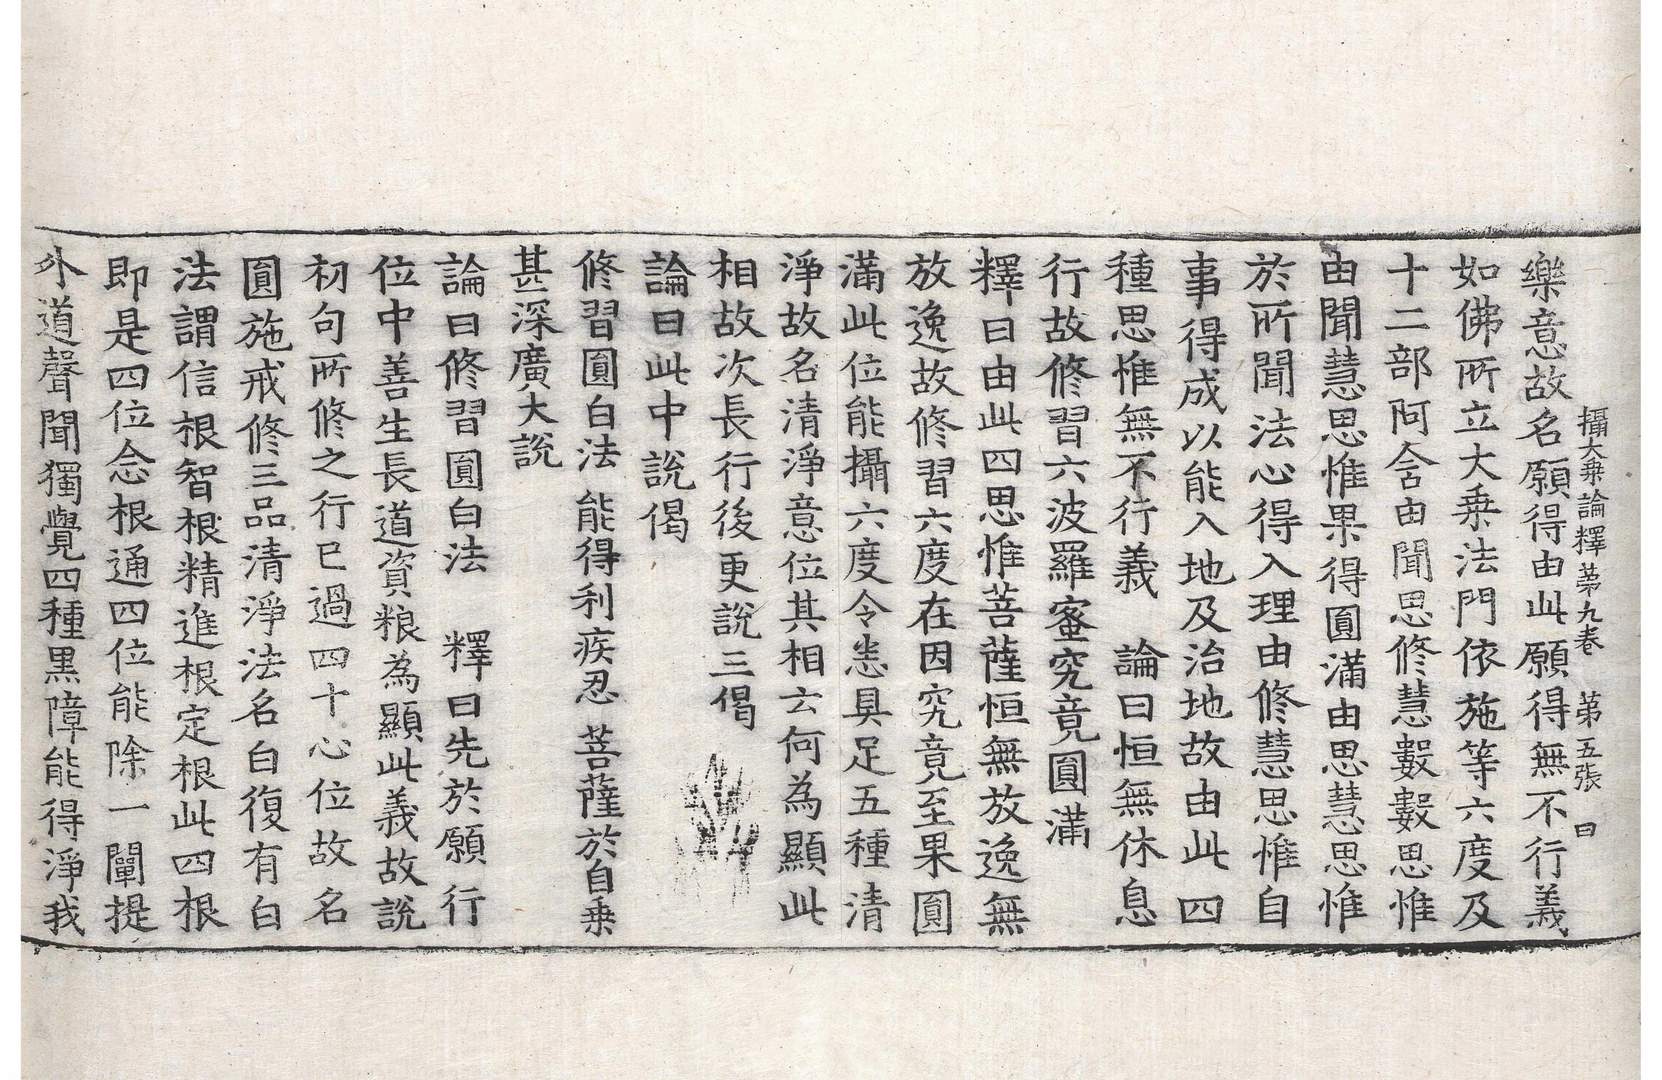 攝大乗論釋第九卷 第五張 曰
樂意故名願得由此願得無不行義
如佛所立大乗法門依施等六度及
十二部阿含由聞思修慧數數思惟
由聞慧思惟果得圓滿由思慧思惟
於所聞法心得入理由修慧思惟自
事得成以能入地及治地故由此四
種思惟無不行義 論曰恒無休息
行故修習六波羅蜜究竟圓滿
釋曰由此四思惟菩薩恒無放逸無
放逸故修習六度在因究竟至果圓
滿此位能攝六度令悉具足五種清
淨故名清淨意位其相云何為顯此
相故次長行後更說三偈
論曰此中說偈
修習圓白法 能得利疾忍 菩薩於自乗
甚深廣大說
論曰修習圓白法 釋曰先於願行
位中善生長道資粮為顯此義故說
初句所修之行已過四十心位故名
圓施戒修三品清淨法名白復有白
法謂信根智根精進根定根此四根
即是四位念根通四位能除一闡提
外道聲聞獨覺四種黑障能得淨我